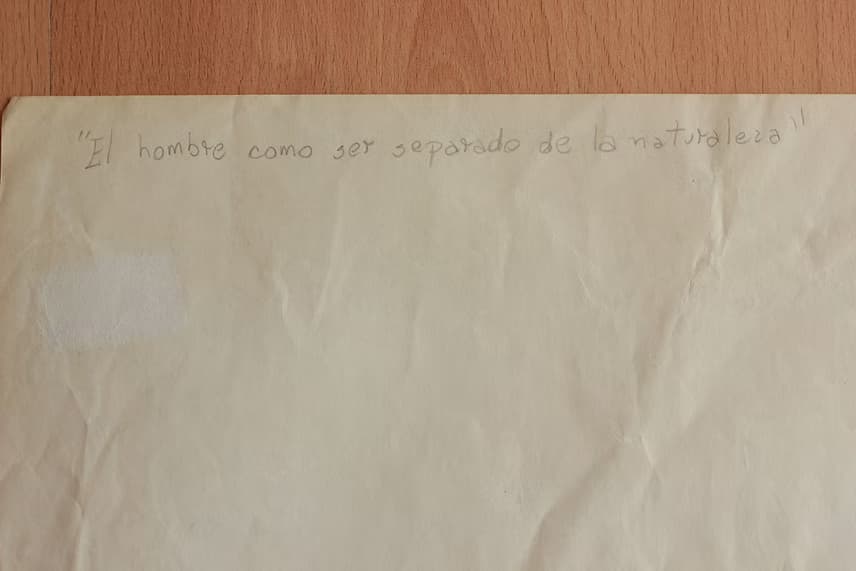 "El hombre como ser separado de la naturaleza"